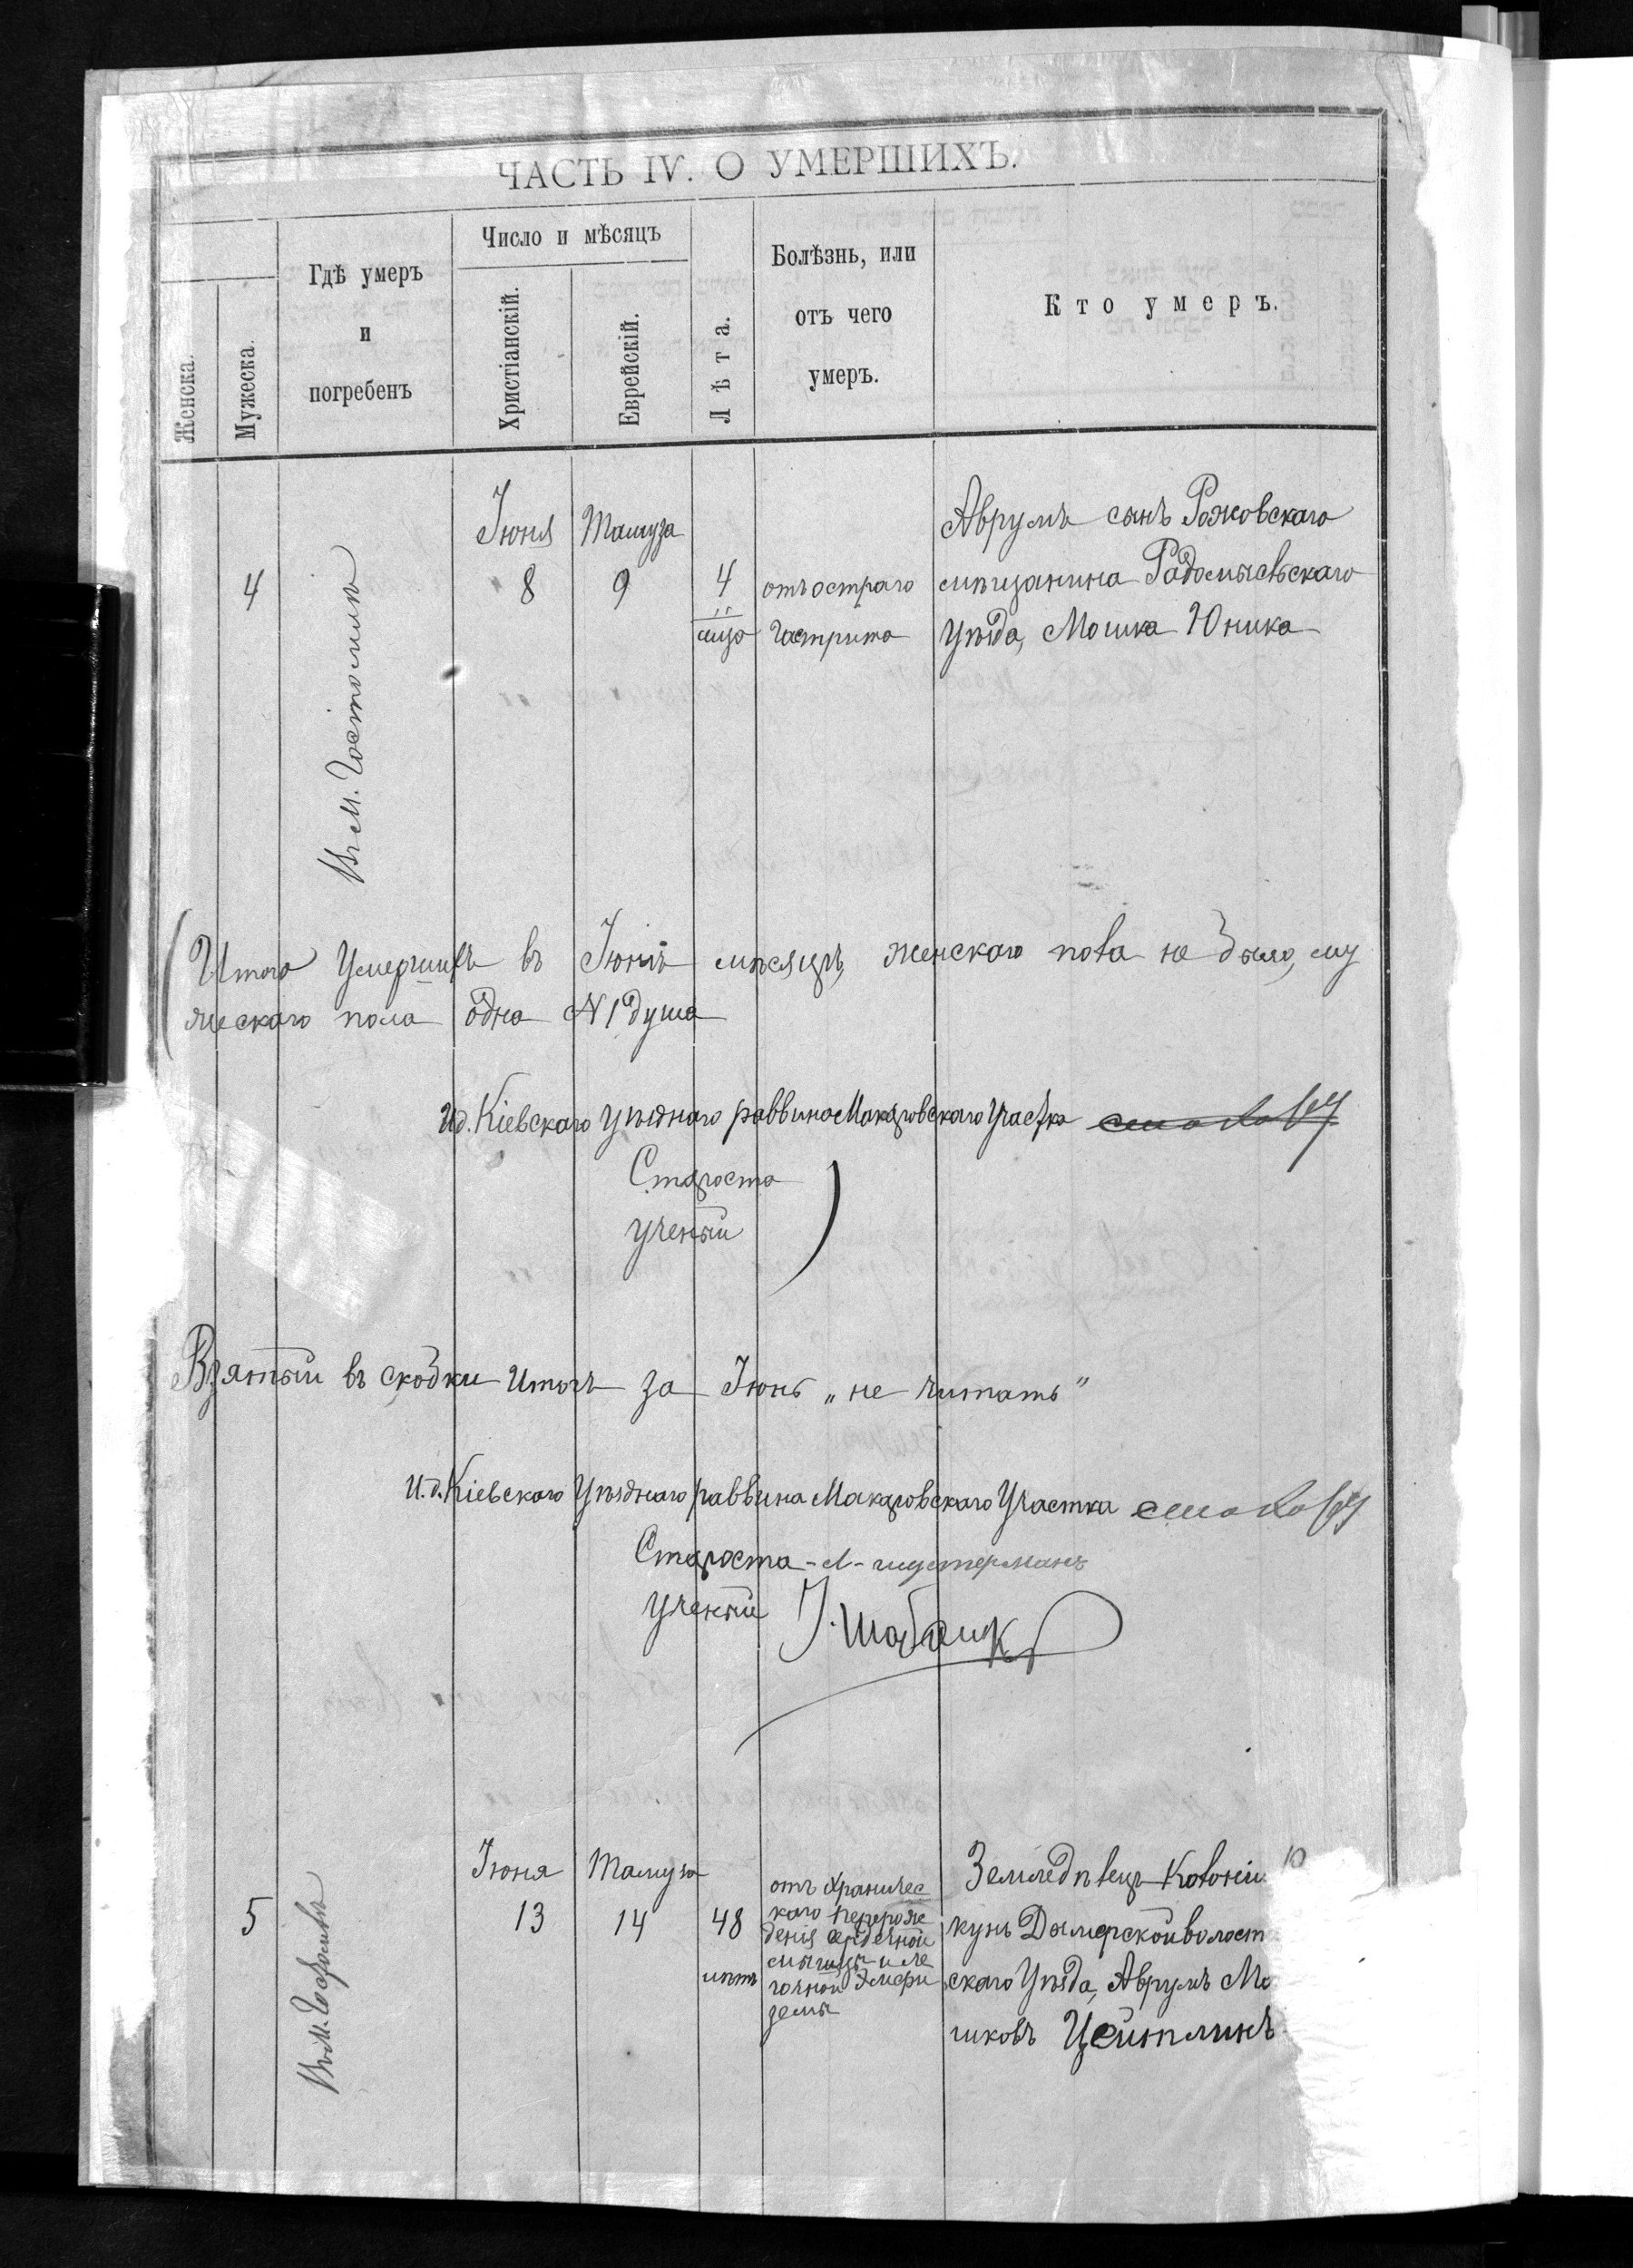 ЧАСТЬ IV. О УМЕРШИХЪ.
Женска.
Мужеска.
Гдѣ умеръ
и
погребенъ
Число и мѣсяцъ
Христіанскій.
Еврейскій.
Лѣта.
Болѣзнь, или
отъ чего
умеръ.
Кто умеръ.
4
Въ м. Гостомлю
Іюня
8
Тамуза
9
4
мца
отъ остраго
гастрита
Аврумъ сынъ Рожовскаго
мѣщанина Радомысльскаго
Уѣзда, Мошка Юника
Итого Умершихъ въ Іюнѣ мѣсяцѣ, женскаго пола не было, му
жескаго пола одна N 1 душа
И.д. Кіевскаго Уѣзднаго раввина Макаровскаго Участка
Староста
Ученый
Взятый въ скобки Итогъ за Іюнь „не читать"
И.д. Кіевскаго Уѣзднаго раввина Макаровскаго Участка
Староста - Л - шустерманъ
Ученый
5
Въ м. Гостомлѣ
Іюня
13
Тамуза
14
48
лѣтъ
отъ хроничес
каго перерож
денія сердечной
мышцы и ле
гочной эмфи
земы
Земледѣлецъ Колоніи
кунь Дымерской волост
скаго Уѣзда, Аврумъ Мо
шковъ Цейтлинъ